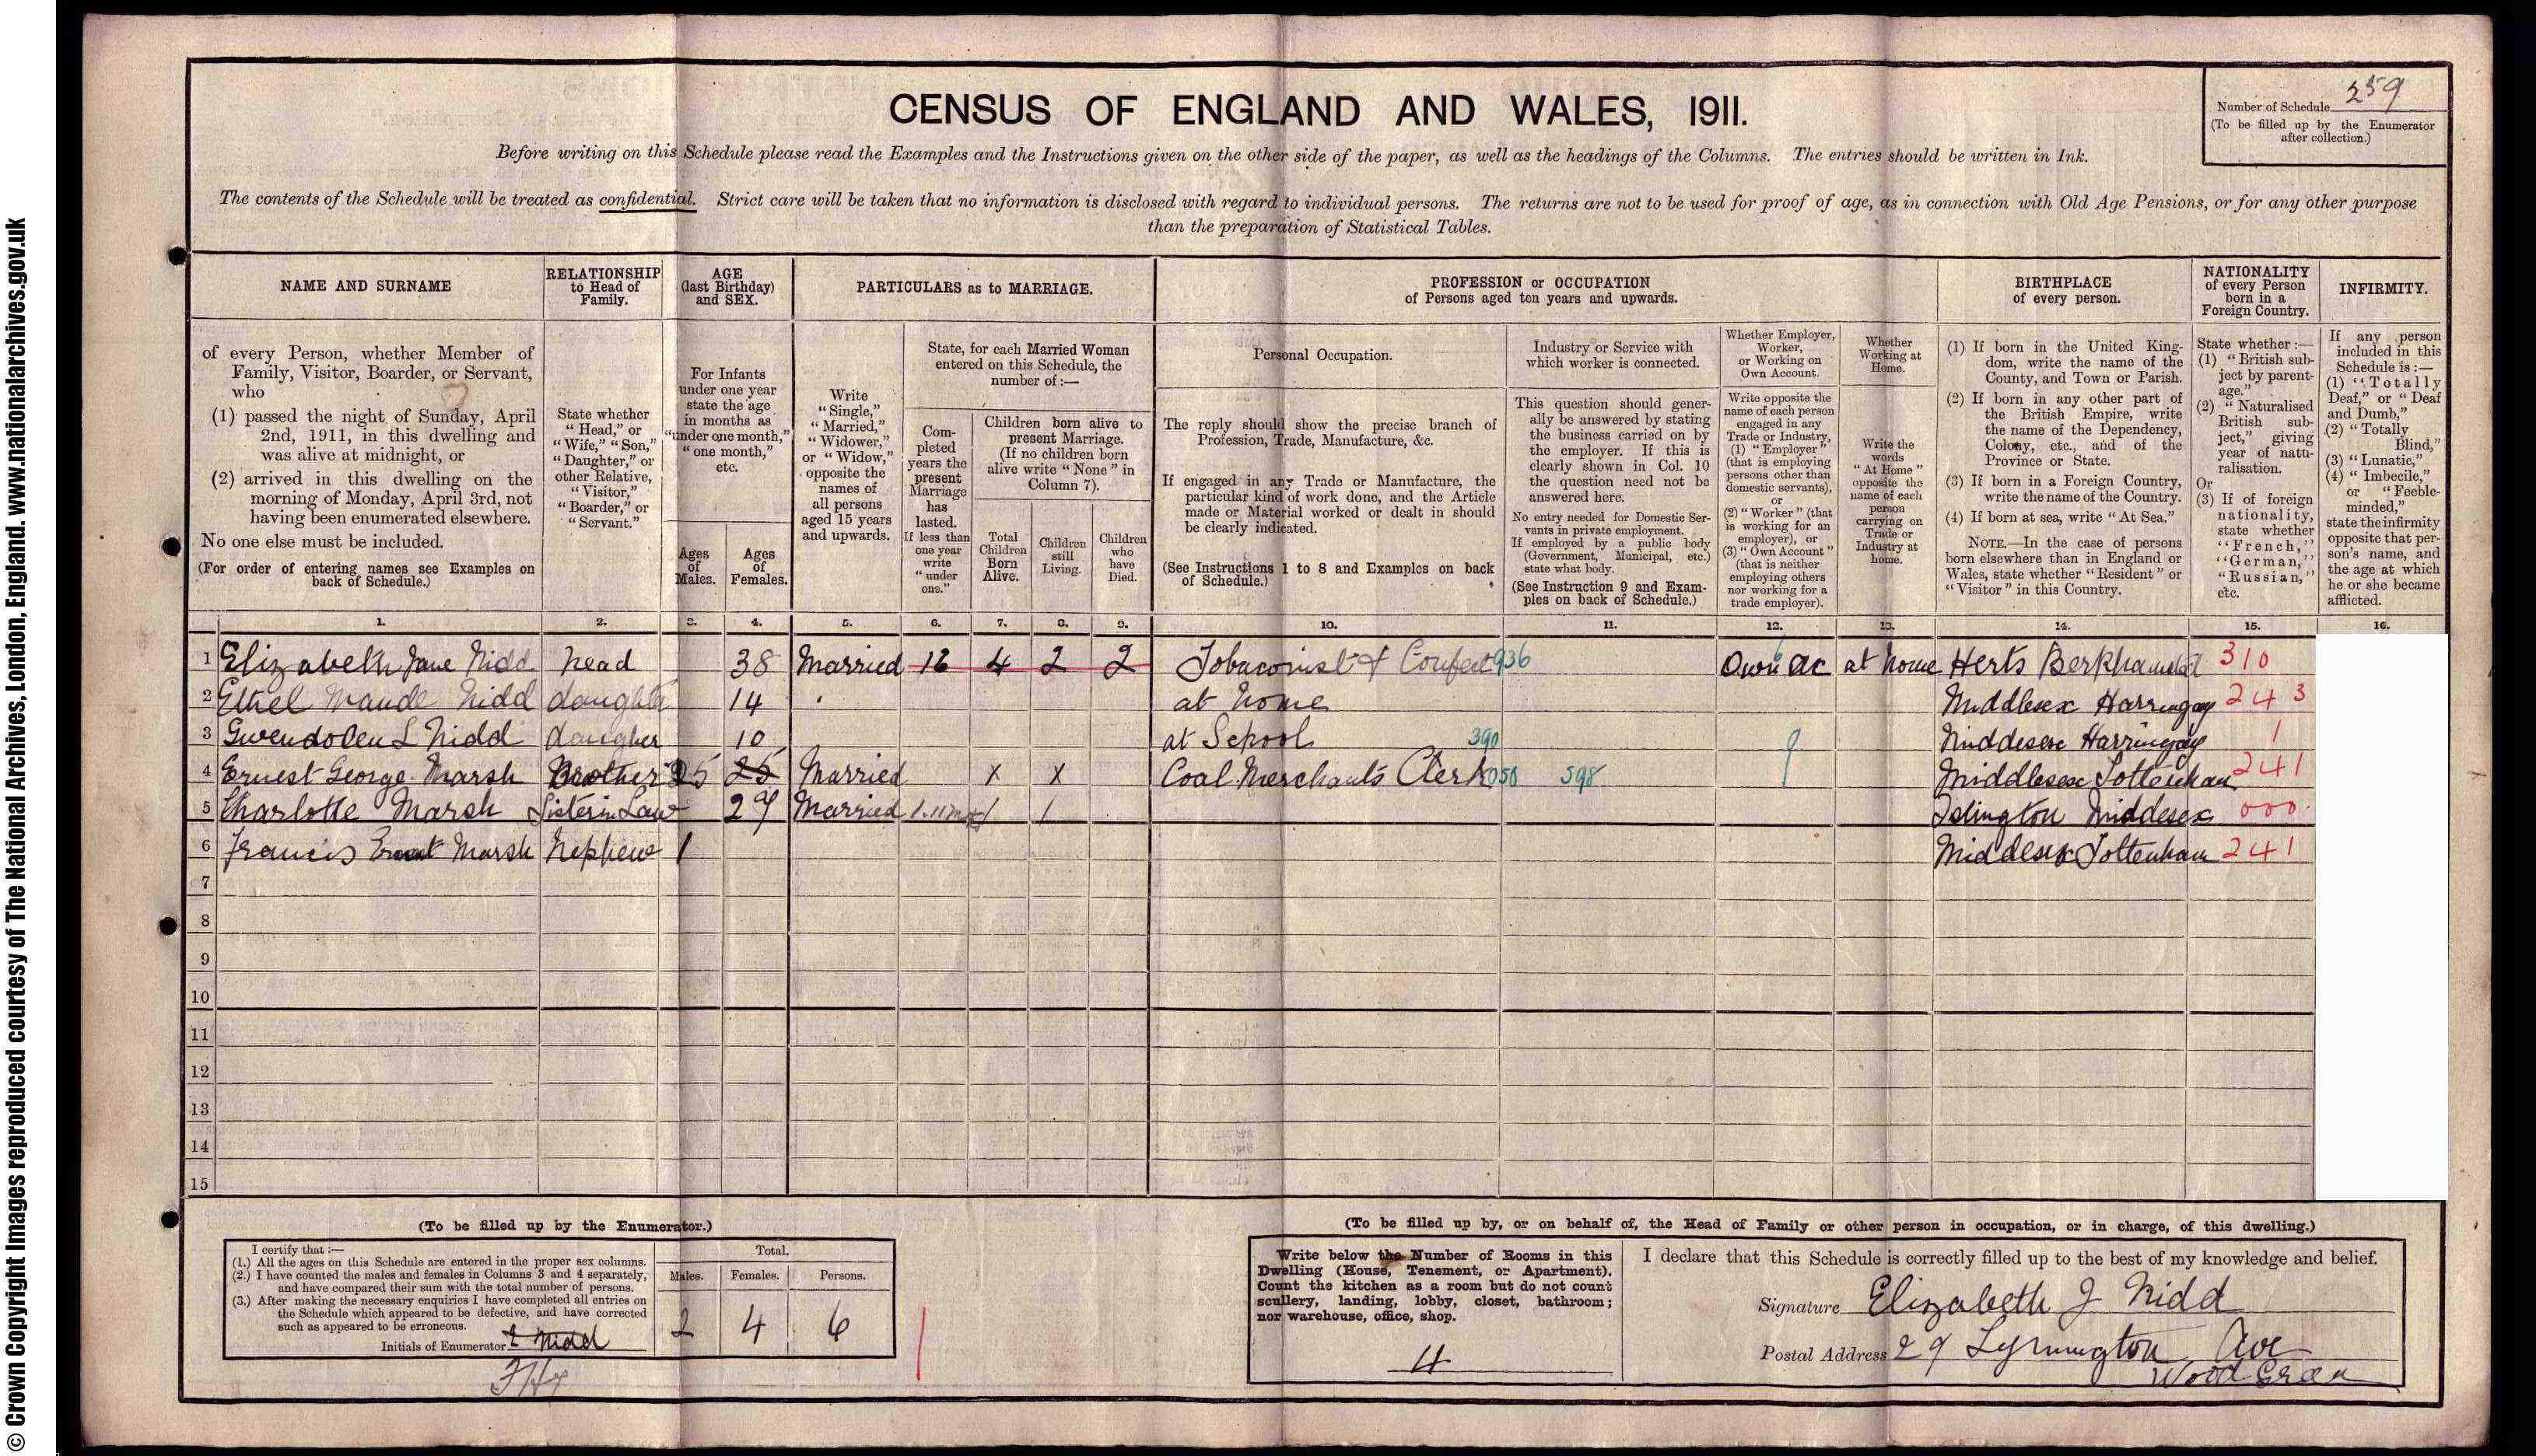 © Crown Copyright Images reproduced courtesy of The National Archives, London, England. www.nationalarchives.gov.uk
CENSUS OF ENGLAND AND WALES, 1911.
Number of Schedule 259
(To be filled up by the Enumerator
after collection.)
Before writing on this Schedule please read the Examples and the Instructions given on the other side of the paper, as well as the headings of the Columns. The entries should be written in Ink.
The contents of the Schedule will be treated as confidential. Strict care will be taken that no information is disclosed with regard to individual persons. The returns are not to be used for proof of age, as in connection with Old Age Pensions, or for any other purpose
than the preparation of Statistical Tables.
NAME AND SURNAME
RELATIONSHIP
to Head of
Family.
AGE
(last Birthday)
and SEX.
PARTICULARS as to MARRIAGE.
PROFESSION or OCCUPATION
of Persons aged ten years and upwards.
BIRTHPLACE
of every person.
NATIONALITY
of every Person
born in a
Foreign Country.
INFIRMITY.
of every Person, whether Member of
Family, Visitor, Boarder, or Servant,
who
(1) passed the night of Sunday, April
2nd, 1911, in this dwelling and
was alive at midnight, or
(2) arrived in this dwelling on the
morning of Monday, April 3rd, not
having been enumerated elsewhere.
No one else must be included.
(For order of entering names see Examples on
back of Schedule.)
State whether
"Head," or
"Wife," "Son,"
"Daughter," or
other Relative,
"Visitor,"
"Boarder," or
"Servant."
For Infants
under one year
state the age
in months as
"under one month,"
"one month,"
etc.
Ages
of
Males.
Ages
of
Females.
Write
"Single,"
"Married,"
"Widower,"
or "Widow,"
opposite the
names of
all persons
aged 15 years
and upwards.
State, for each Married Woman
entered on this Schedule, the
number of :—
Com-
pleted
years the
present
Marriage
has
lasted.
If less than
one year
write
"under
one."
Children born alive to
present Marriage.
(If no children born
alive write "None" in
Column 7).
Total
Children
Born
Alive.
Children
still
Living.
Children
who
have
Died.
Personal Occupation.
The reply should show the precise branch of
Profession, Trade, Manufacture, &c.
If engaged in any Trade or Manufacture, the
particular kind of work done, and the Article
made or Material worked or dealt in should
be clearly indicated.
(See Instructions 1 to 8 and Examples on back
of Schedule.)
Industry or Service with
which worker is connected.
This question should gener-
ally be answered by stating
the business carried on by
the employer. If this is
clearly shown in Col. 10
the question need not be
answered here.
No entry needed for Domestic Ser-
vants in private employment.
If employed by a public body
(Government, Municipal, etc.)
state what body.
(See Instruction 9 and Exam-
ples on back of Schedule.)
Whether Employer,
Worker,
or Working on
Own Account.
Write opposite the
name of each person
engaged in any
Trade or Industry,
(1) "Employer"
(that is employing
persons other than
domestic servants),
or
(2) "Worker" (that
is working for an
employer), or
(3) "Own Account"
(that is neither
employing others
nor working for a
trade employer).
Whether
Working at
Home.
Write the
words
"At Home"
opposite the
name of each
person
carrying on
Trade or
Industry at
home.
(1) If born in the United King-
dom, write the name of the
County, and Town or Parish.
(2) If born in any other part of
the British Empire, write
the name of the Dependency,
Colony, etc., and of the
Province or State.
(3) If born in a Foreign Country,
write the name of the Country.
(4) If born at sea, write "At Sea."
NOTE.—In the case of persons
born elsewhere than in England or
Wales, state whether "Resident" or
"Visitor" in this Country.
State whether :—
(1) "British sub-
ject by parent-
age."
(2) "Naturalised
British sub-
ject," giving
year of natu-
ralisation.
Or
(3) If of foreign
nationality,
state whether
"French,"
"German,"
"Russian,"
etc.
If any person
included in this
Schedule is :—
(1) "Totally
Deaf," or "Deaf
and Dumb,"
(2) "Totally
Blind,"
(3) "Lunatic,"
(4) "Imbecile,"
or "Feeble-
minded,"
state the infirmity
opposite that per-
son's name, and
the age at which
he or she became
afflicted.
1. 2. 3. 4. 5. 6. 7. 8. 9. 10. 11. 12. 13. 14. 15. 16.
1 Elizabeth Jane Nidd head 38 Married 16 4 2 2 Tobaconist & Confect 936 Own ac at home Herts Berkhamsted 310
2 Ethel Maude Nidd daughter 14 at home Middlesex Harringay 243
3 Gwendolen L Nidd daugher 10 at School 390 Middesex Harringay 1
4 Ernest George Marsh Brother 25 25 Married X X Coal Merchants Clerk 050 598 Middlesex Tottenham 241
5 Charlotte Marsh Sister in Law 29 Married 1.11 mts 1 1 Islington Middesex 000
6 Francis Ernest Marsh Nephew 1 Middlesex Tottenham 241
7
8
9
10
11
12
13
14
15
(To be filled up by the Enumerator.)
I certify that :—
(1.) All the ages on this Schedule are entered in the proper sex columns.
(2.) I have counted the males and females in Columns 3 and 4 separately,
and have compared their sum with the total number of persons.
(3.) After making the necessary enquiries I have completed all entries on
the Schedule which appeared to be defective, and have corrected
such as appeared to be erroneous.
Initials of Enumerator E Nidd
Total.
Males. Females. Persons.
2 4 6
(To be filled up by, or on behalf of, the Head of Family or other person in occupation, or in charge, of this dwelling.)
Write below the Number of Rooms in this
Dwelling (House, Tenement, or Apartment).
Count the kitchen as a room but do not count
scullery, landing, lobby, closet, bathroom;
nor warehouse, office, shop.
4
I declare that this Schedule is correctly filled up to the best of my knowledge and belief.
Signature Elizabeth J Nidd
Postal Address 29 Lymington Ave
Wood Green